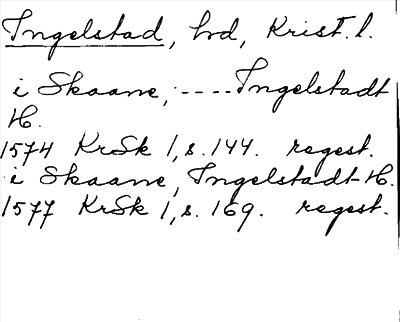 Ingelstad, hd, Krist. l.
i Skaane, ---- Ingelstadt
H.
1574 KrSk 1, s. 144. regest.
i Skaane, Ingelstadt-H.
1577 KrSk 1, s. 169. regest.